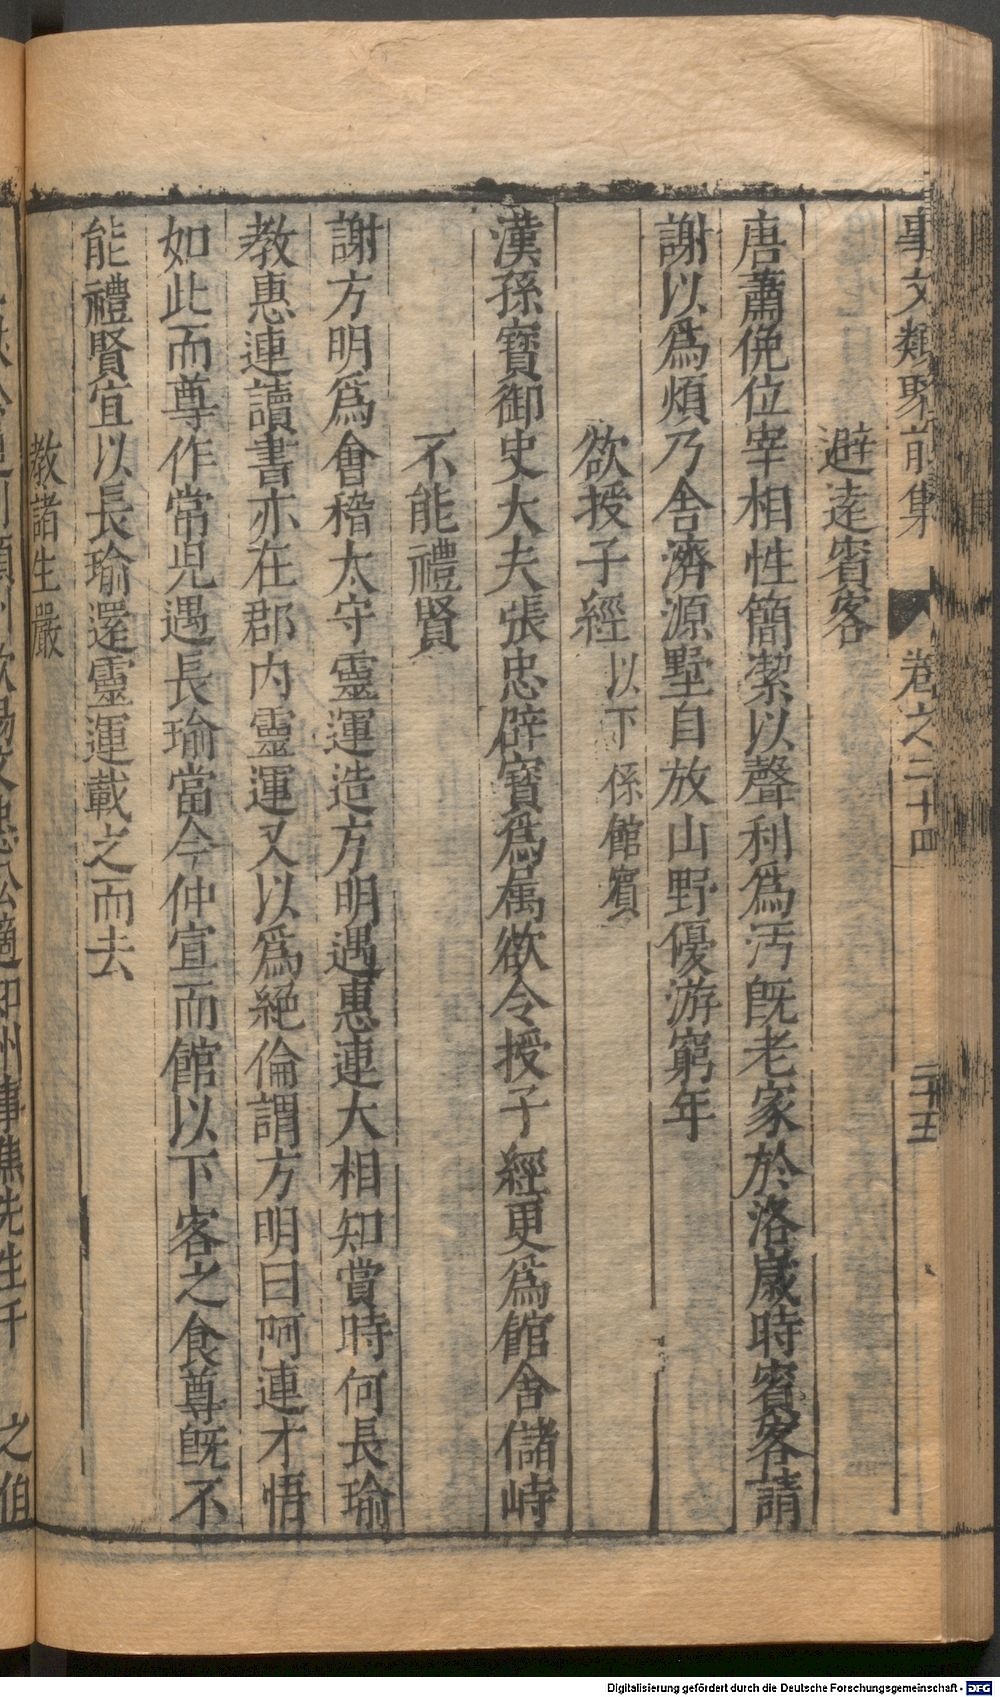 事文類聚前集 卷之三十四 二十五
避遠賓客
唐蕭俛位宰相性簡潔以聲利為汚旣老家於洛歲時賓客請
謝以為煩乃舍濟源墅自放山野優游窮年
欲授子經 以下係館賓
漢孫寶御史大夫張忠辟寶為属欲令授子經更為館舍儲峙
不能禮賢
謝方明為會稽太守靈運造方明遇惠連大相知賞時何長瑜
教惠連讀書亦在郡內靈運又以為絕倫謂方明曰阿連才悟
如此而尊作常兒遇長瑜當今仲宣而館以下客之食尊旣不
能禮賢宜以長瑜還靈運載之而去
教諸生嚴
歐陽文忠公適知州事焦先生千之伯
Digitalisierung gefördert durch die Deutsche Forschungsgemeinschaft - DFG